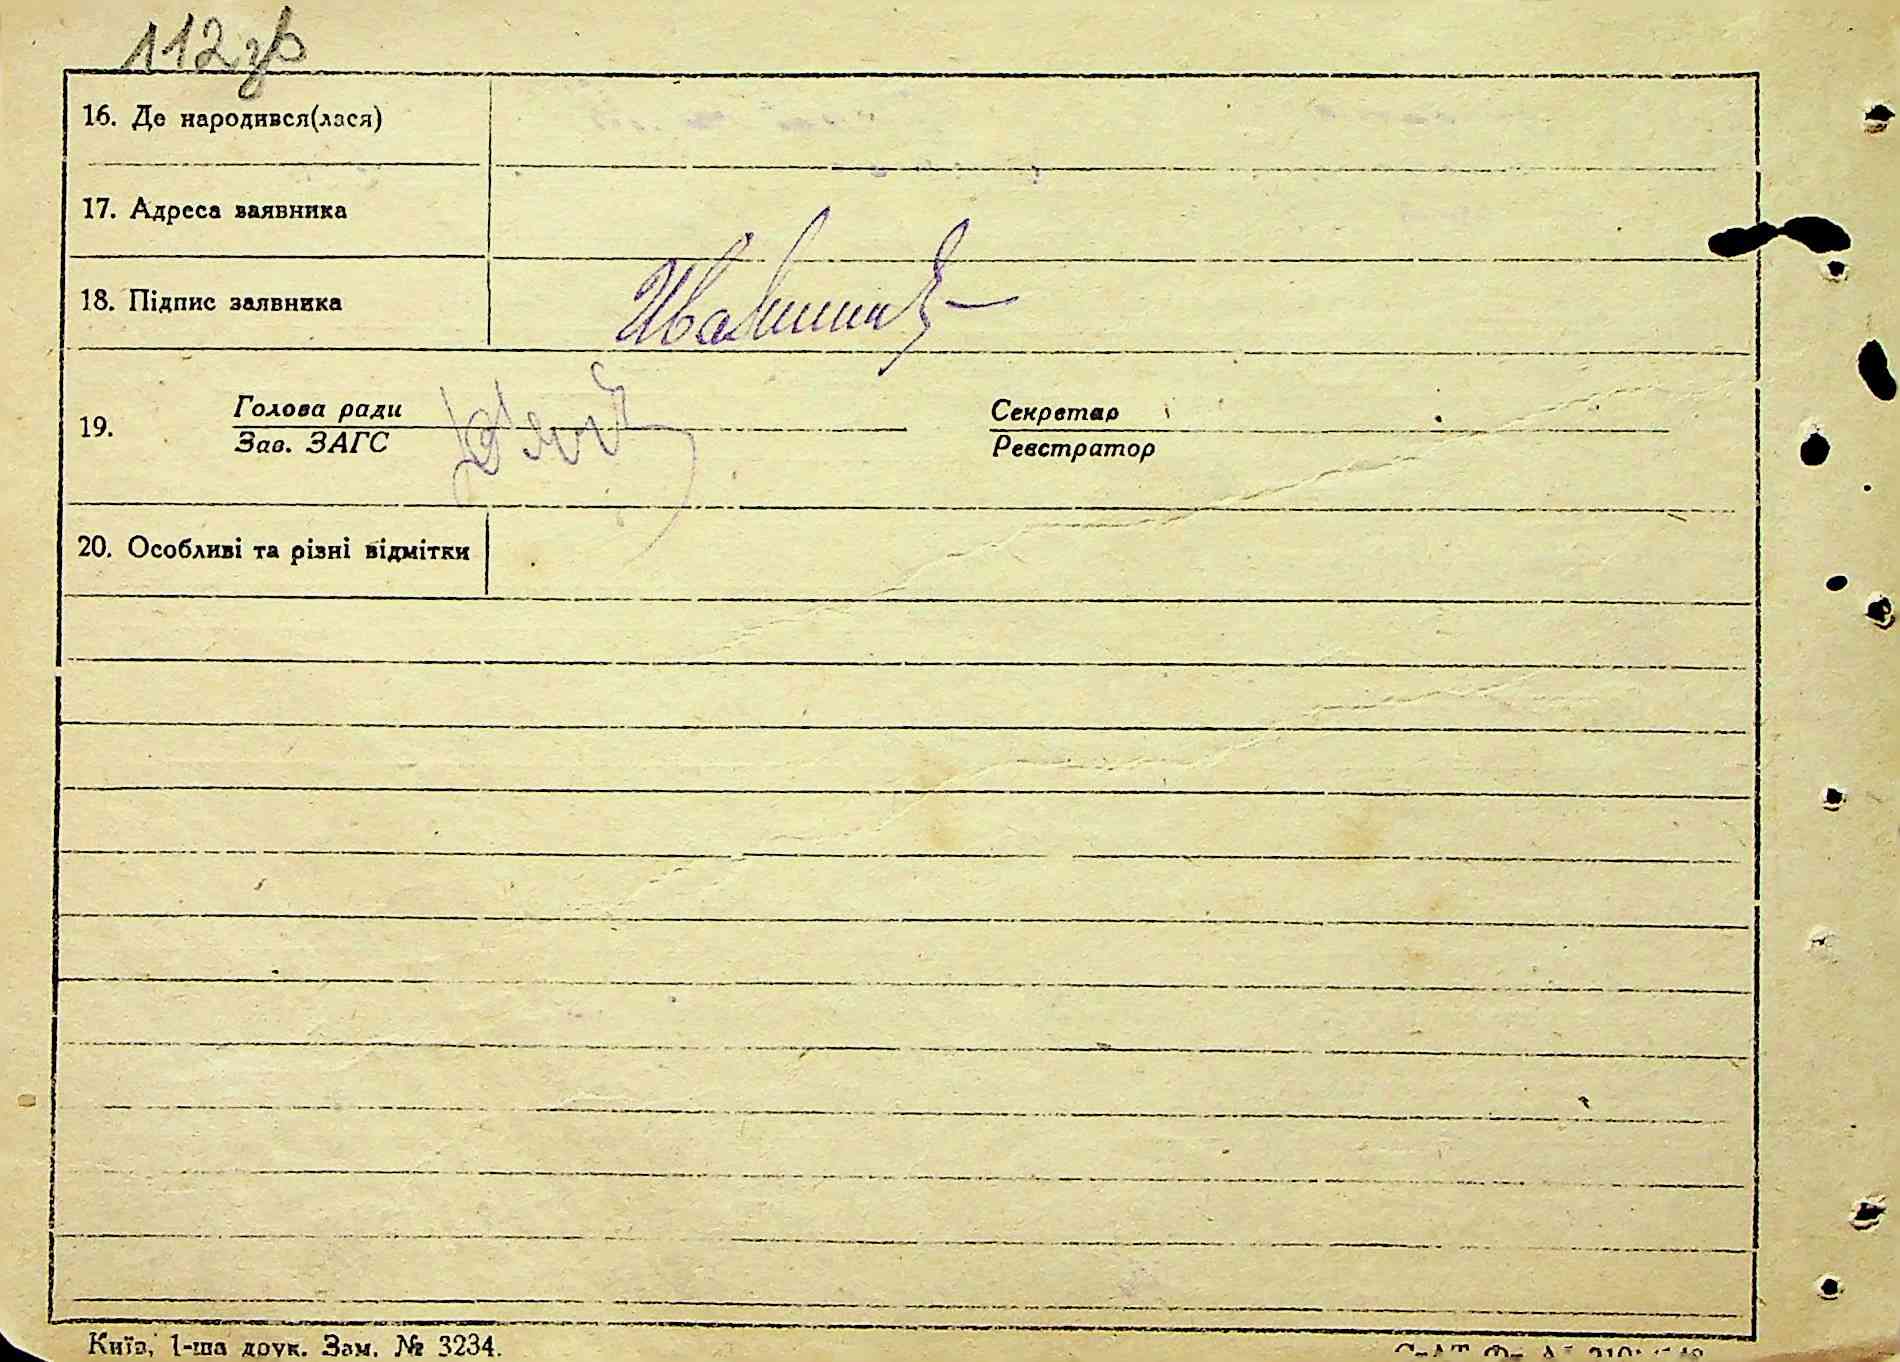 112 зв
16. Де народився(лася)
17. Адреса заявника
18. Підпис заявника
19. Голова ради
Зав. ЗАГС
Секретар
Реєстратор
20. Особливі та різні відмітки
Київ, 1-ша друк. Зам. № 3234.